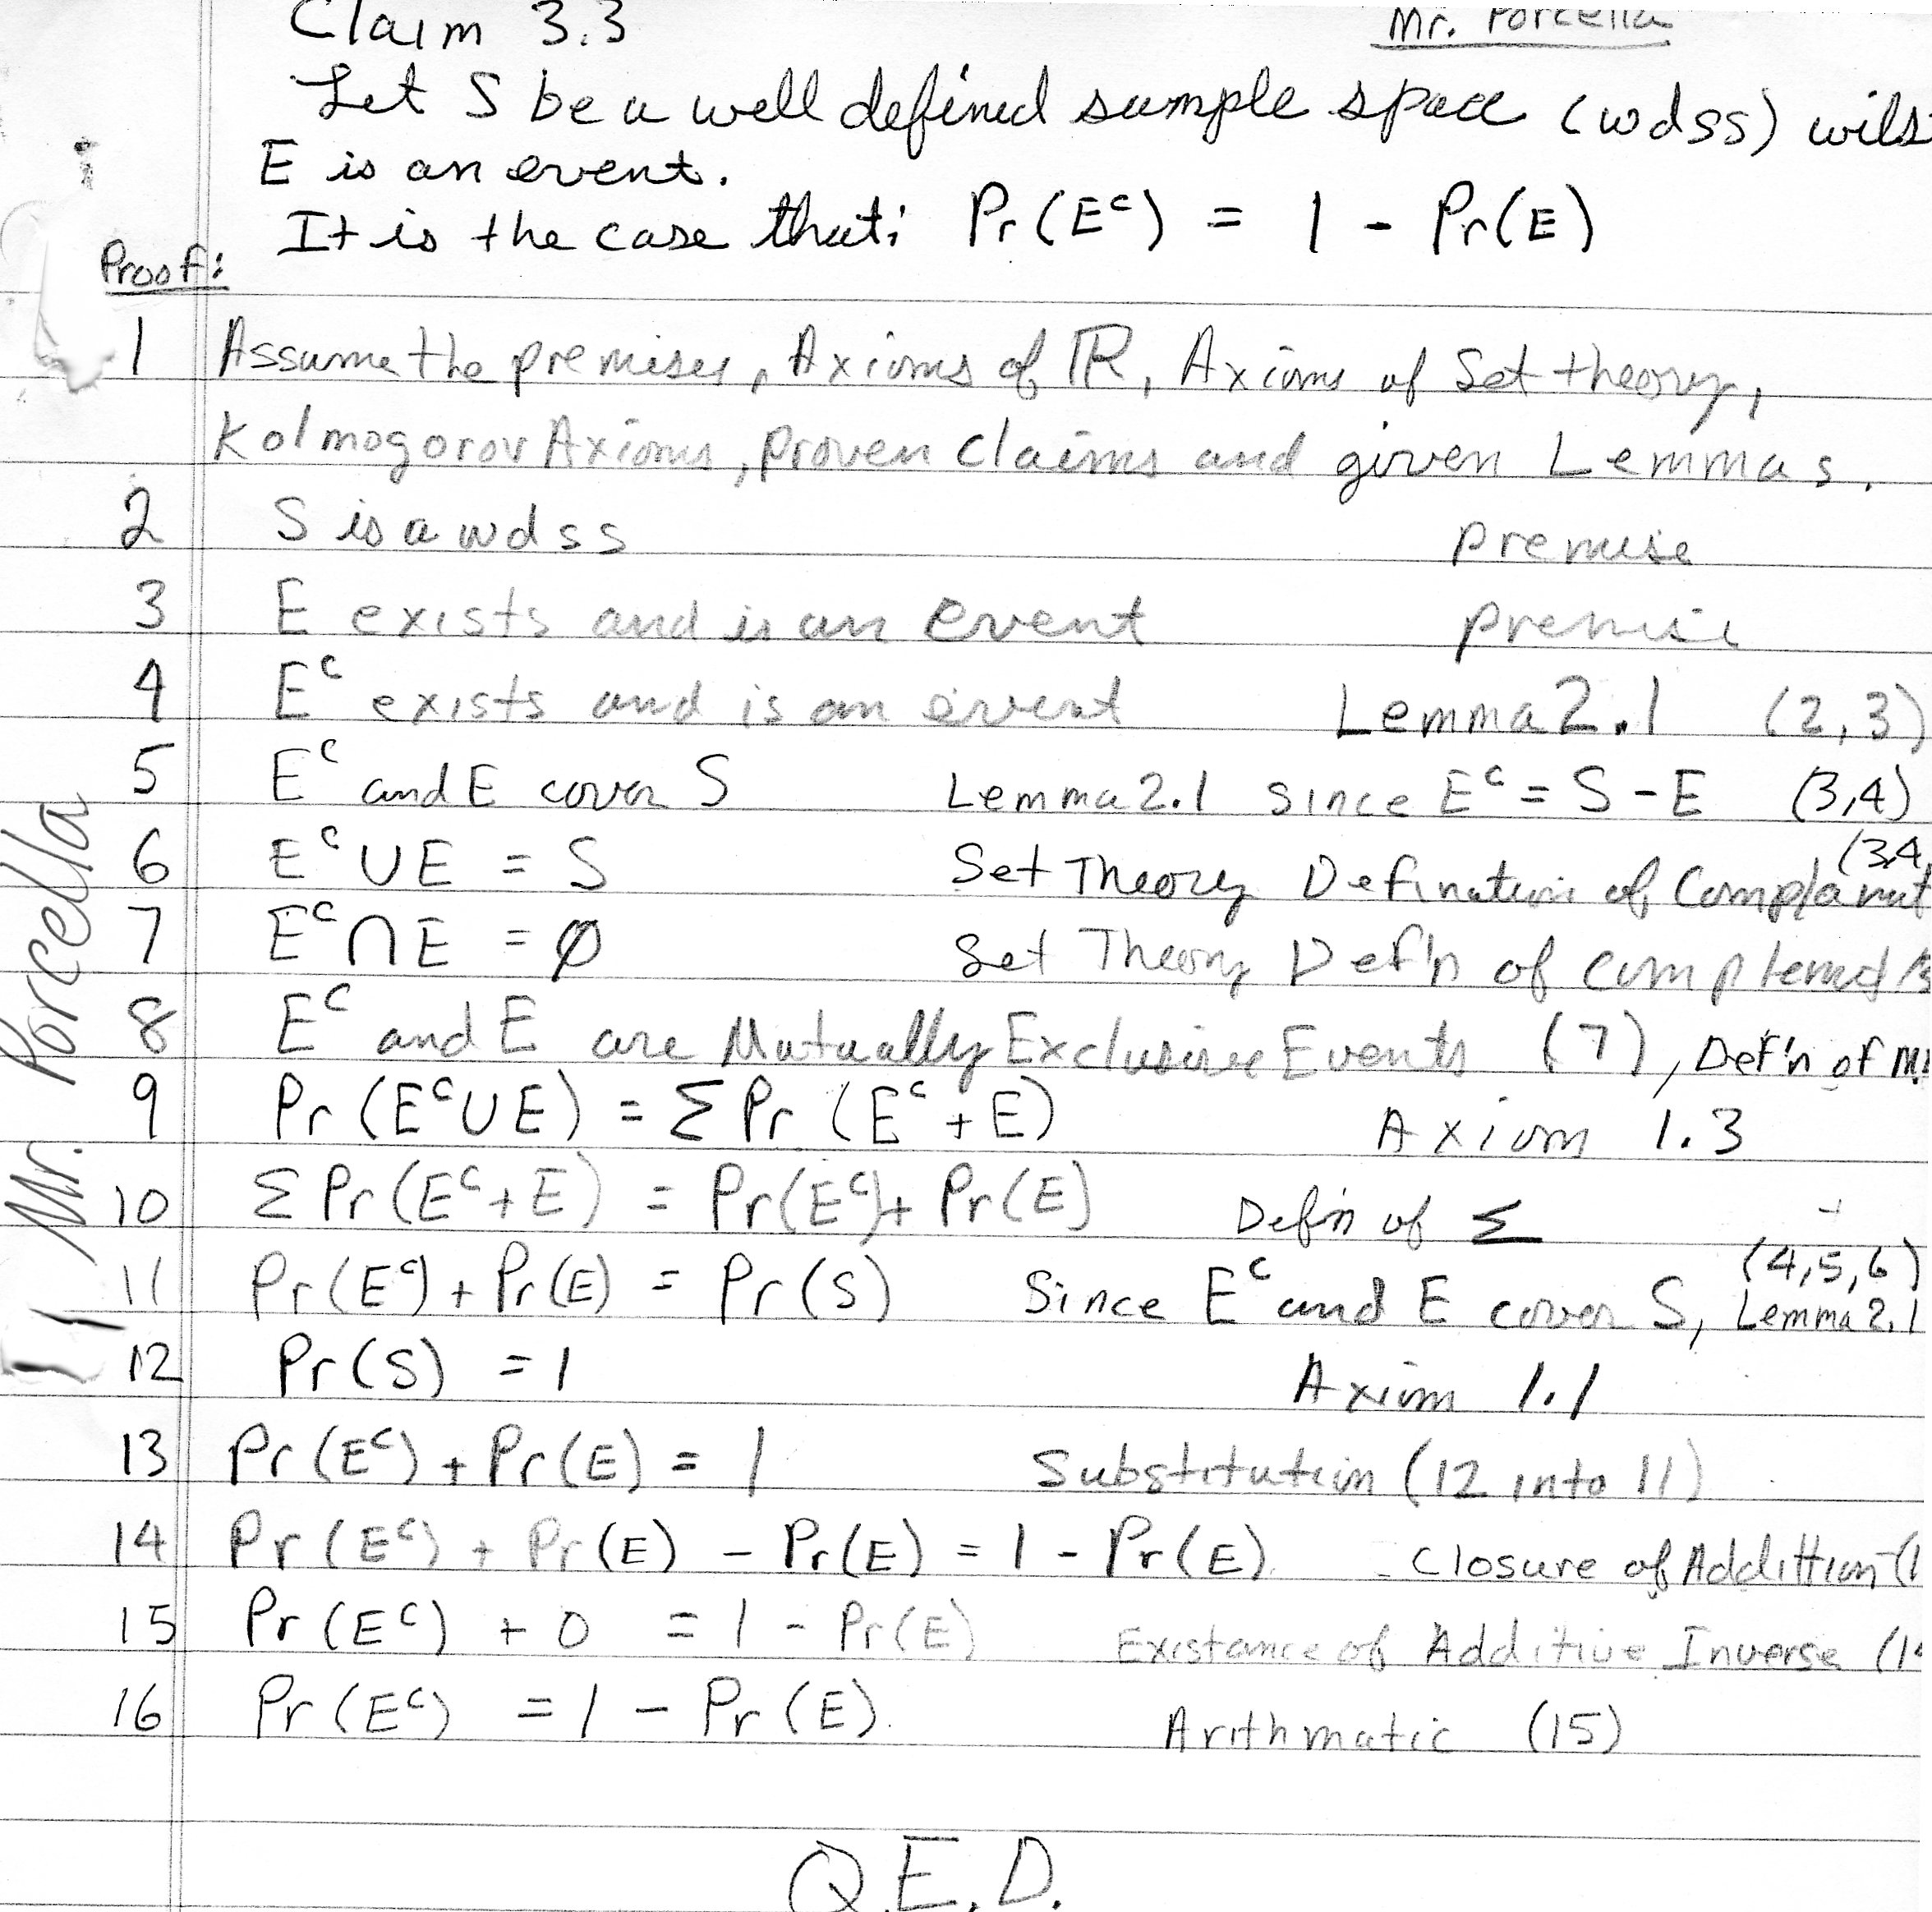 Claim 3.3
Mr. Porcella
Let S be a well defined sample space (wdss) wilst
E is an event.
It is the case that: Pr(Eᶜ) = 1 - Pr(E)
Proof:
1 Assume the premises, Axioms of ℝ, Axioms of Set theory,
Kolmogorov Axioms, proven claims and given Lemmas.
2 S is a wdss premise
3 E exists and is an event premise
4 Eᶜ exists and is an event Lemma 2.1 (2,3)
5 Eᶜ and E cover S Lemma 2.1 since Eᶜ = S - E (3,4)
6 Eᶜ ∪ E = S Set Theory Defination of Complament (3,4,
7 Eᶜ ∩ E = ∅ Set Theory Def'n of complement
8 Eᶜ and E are Mutually Exclusive Events (7), Def'n of M.
9 Pr(Eᶜ ∪ E) = Σ Pr(Eᶜ + E) Axiom 1.3
10 Σ Pr(Eᶜ + E) = Pr(Eᶜ) + Pr(E) Def'n of Σ
11 Pr(Eᶜ) + Pr(E) = Pr(S) Since Eᶜ and E cover S, (4,5,6) Lemma 2.1
12 Pr(S) = 1 Axiom 1.1
13 Pr(Eᶜ) + Pr(E) = 1 Substitution (12 into 11)
14 Pr(Eᶜ) + Pr(E) - Pr(E) = 1 - Pr(E). Closure of Addittion (1
15 Pr(Eᶜ) + 0 = 1 - Pr(E) Existance of Additive Inverse (14
16 Pr(Eᶜ) = 1 - Pr(E). Arithmatic (15)
Q.E.D.
Mr. Porcella